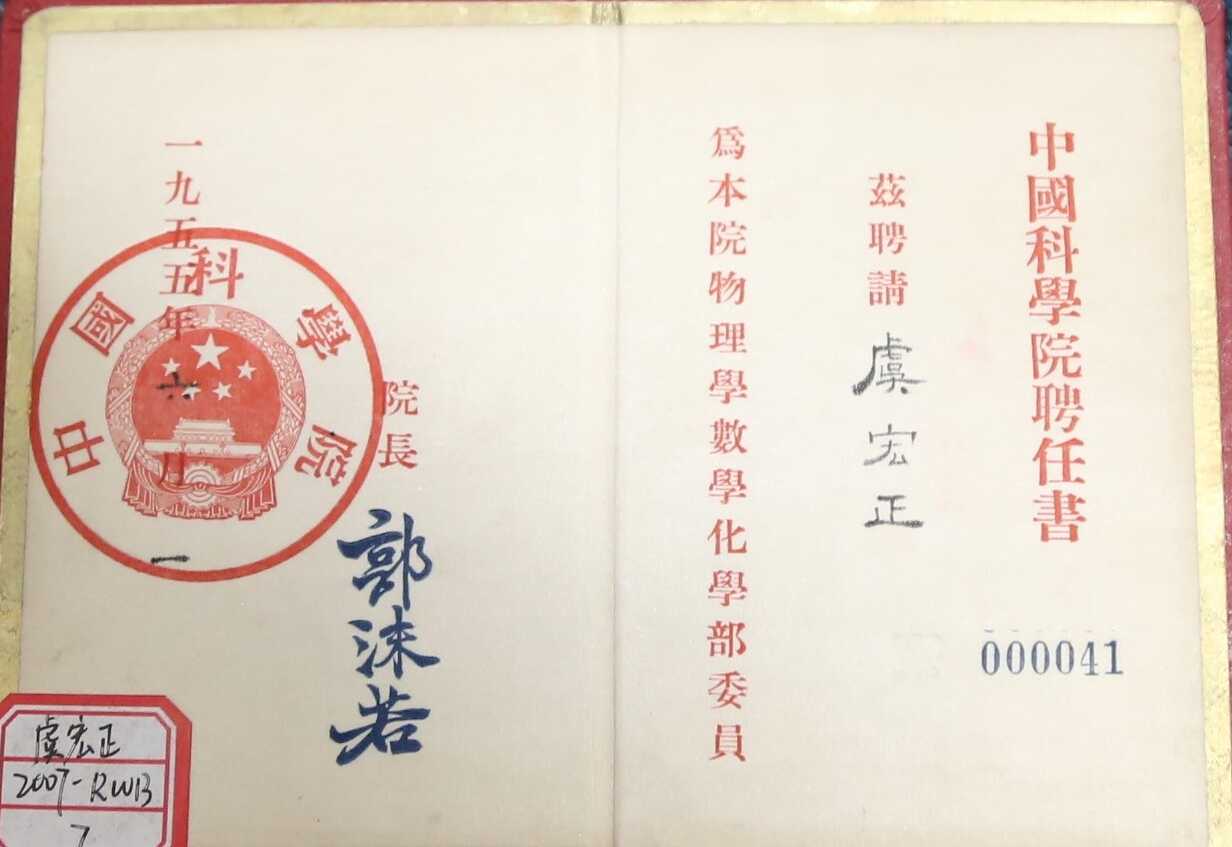 中國科學院聘任書
茲聘請虞宏正
爲本院物理學數學化學部委員
000041
院長 郭沫若
一九五五年六月一
中國科學院
虞宏正
2007-RWB
7